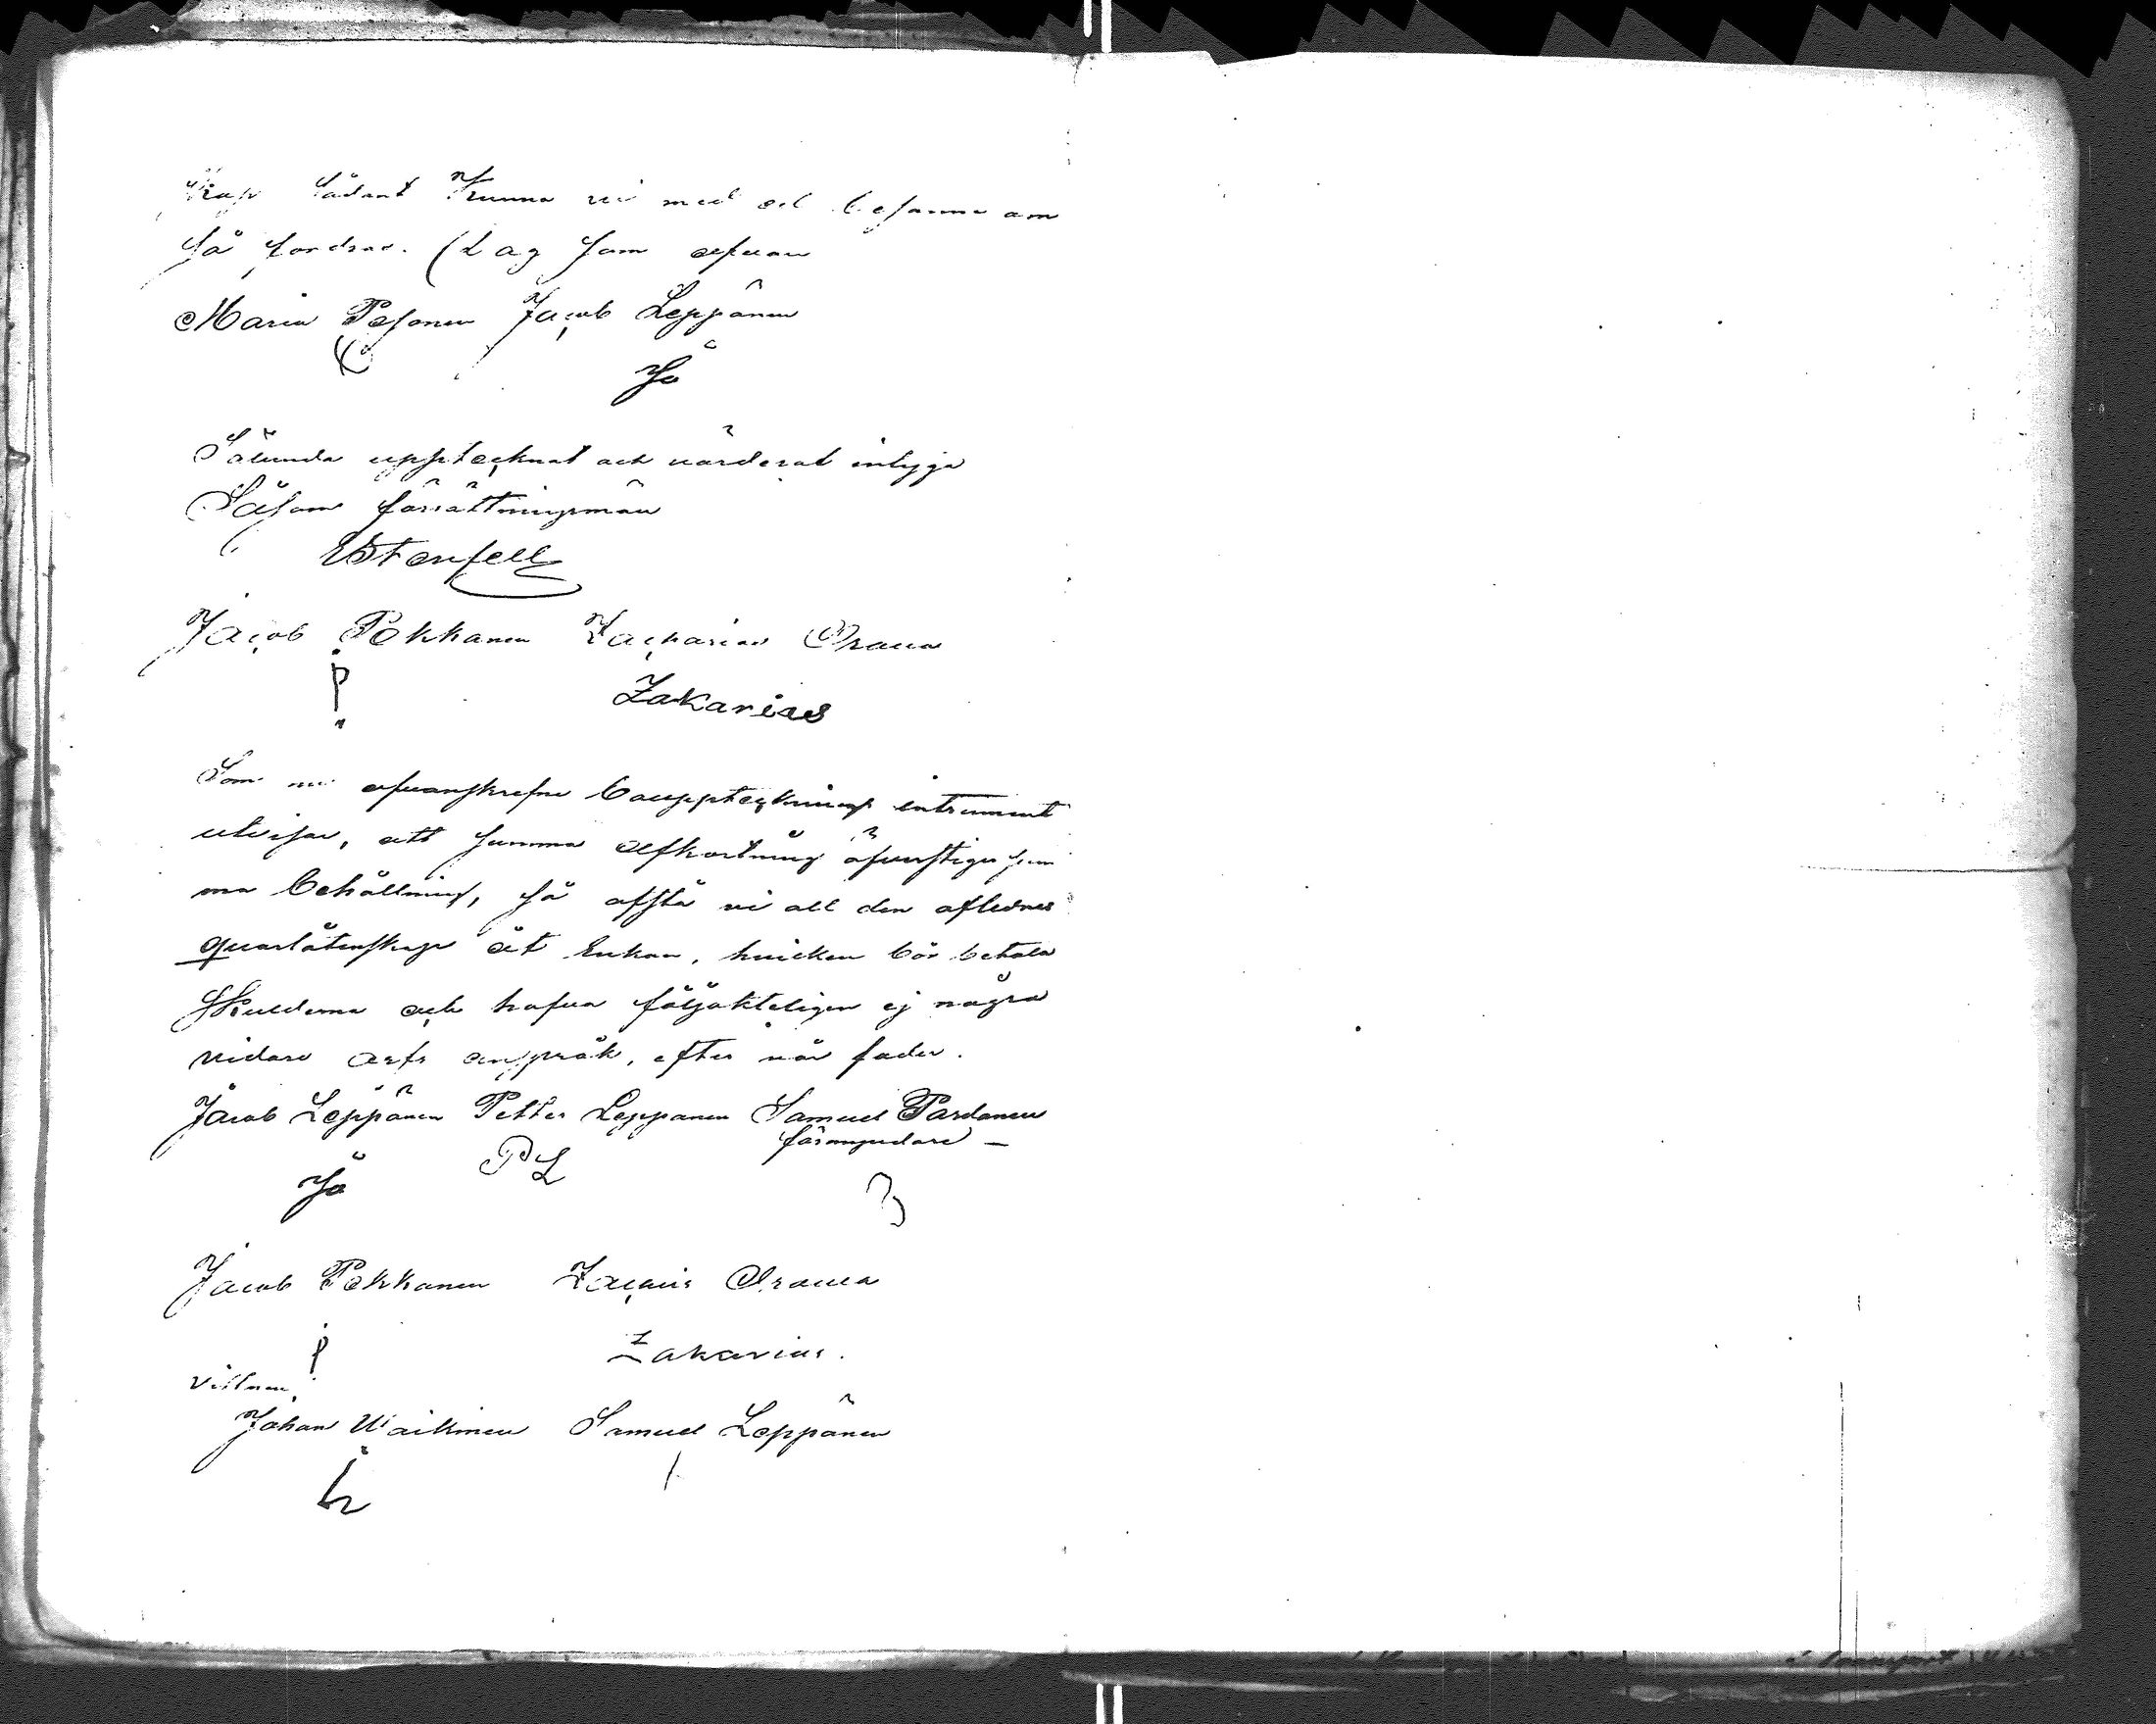 skap Sådant Kunna vi med ed besanna om
så fordras. Dag som ofvan
Maria Pesonen Jacob Leppänen
Jä
Sålunda upptecknat och värderat intyga
Såsom förrättningsmän
EStenfell
Jacob Pekkanen Zacharias Orava
P
Zakarias
Som nu ofvanskrefne bouppteckning intrument
utvisar, att summa Afkortning öfverstiger sum
ma behållning, så afstå vi all den aflednes
quarlåtenskap åt Enkan, hvilken bör betala
Skulderna och hafva följakteligen ej några
vidare arfs anspråk, efter vår fader.
Jacob Leppänen Petter Leppänen Samuel Pardanen
förmyndare
Jä PL
Jacob Pekkanen Zachris Orava
P Zakarias.
Vittnen,
Johan Waikinen Samuel Leppänen